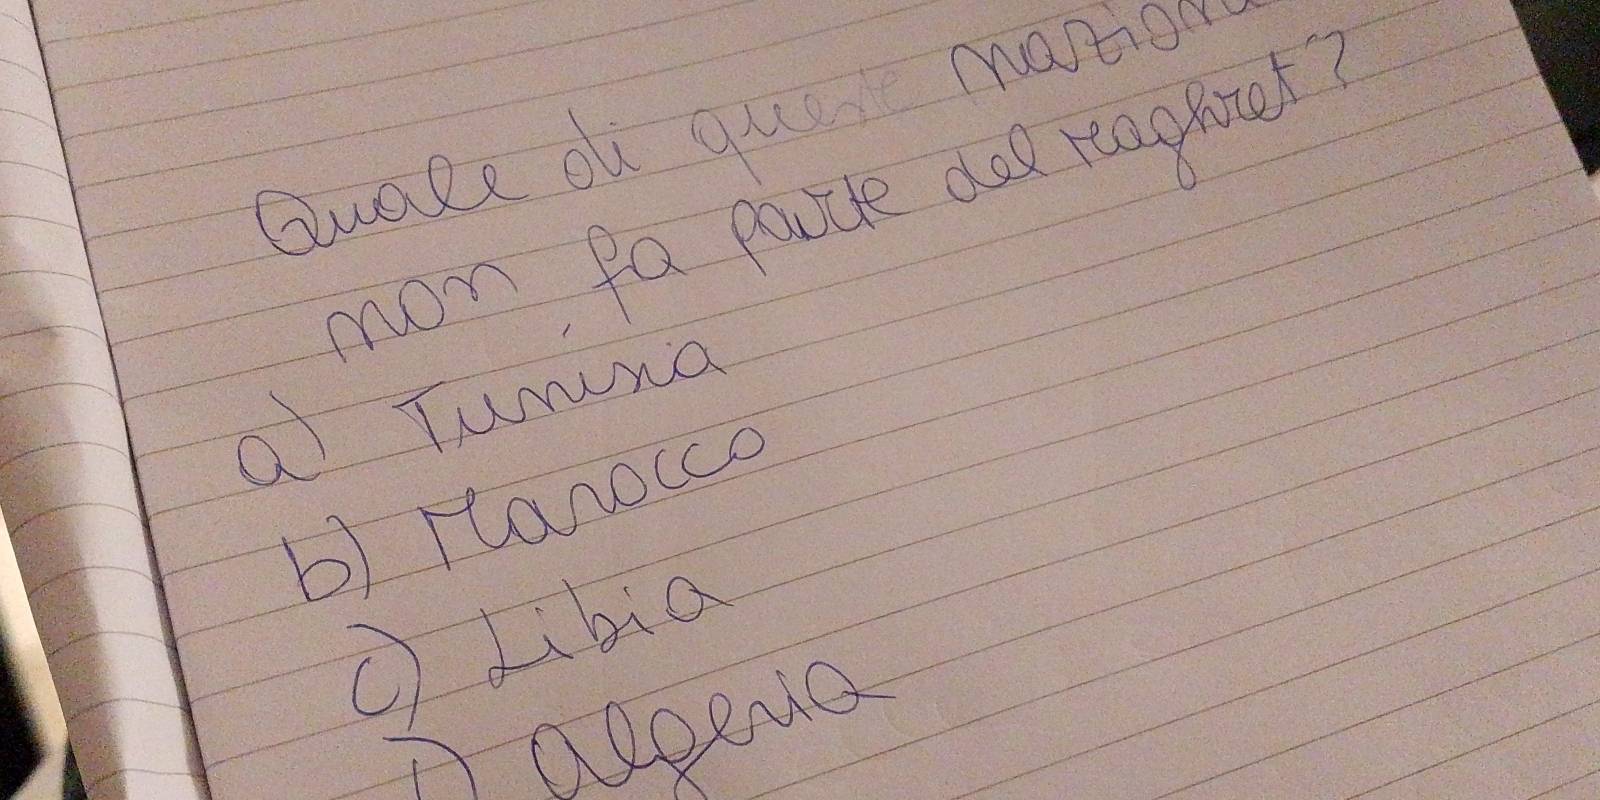 Quale di queste nazioni
non fa parte del Maghret?
a) Tunisia
b) Marocco
c) Libia
) algeria